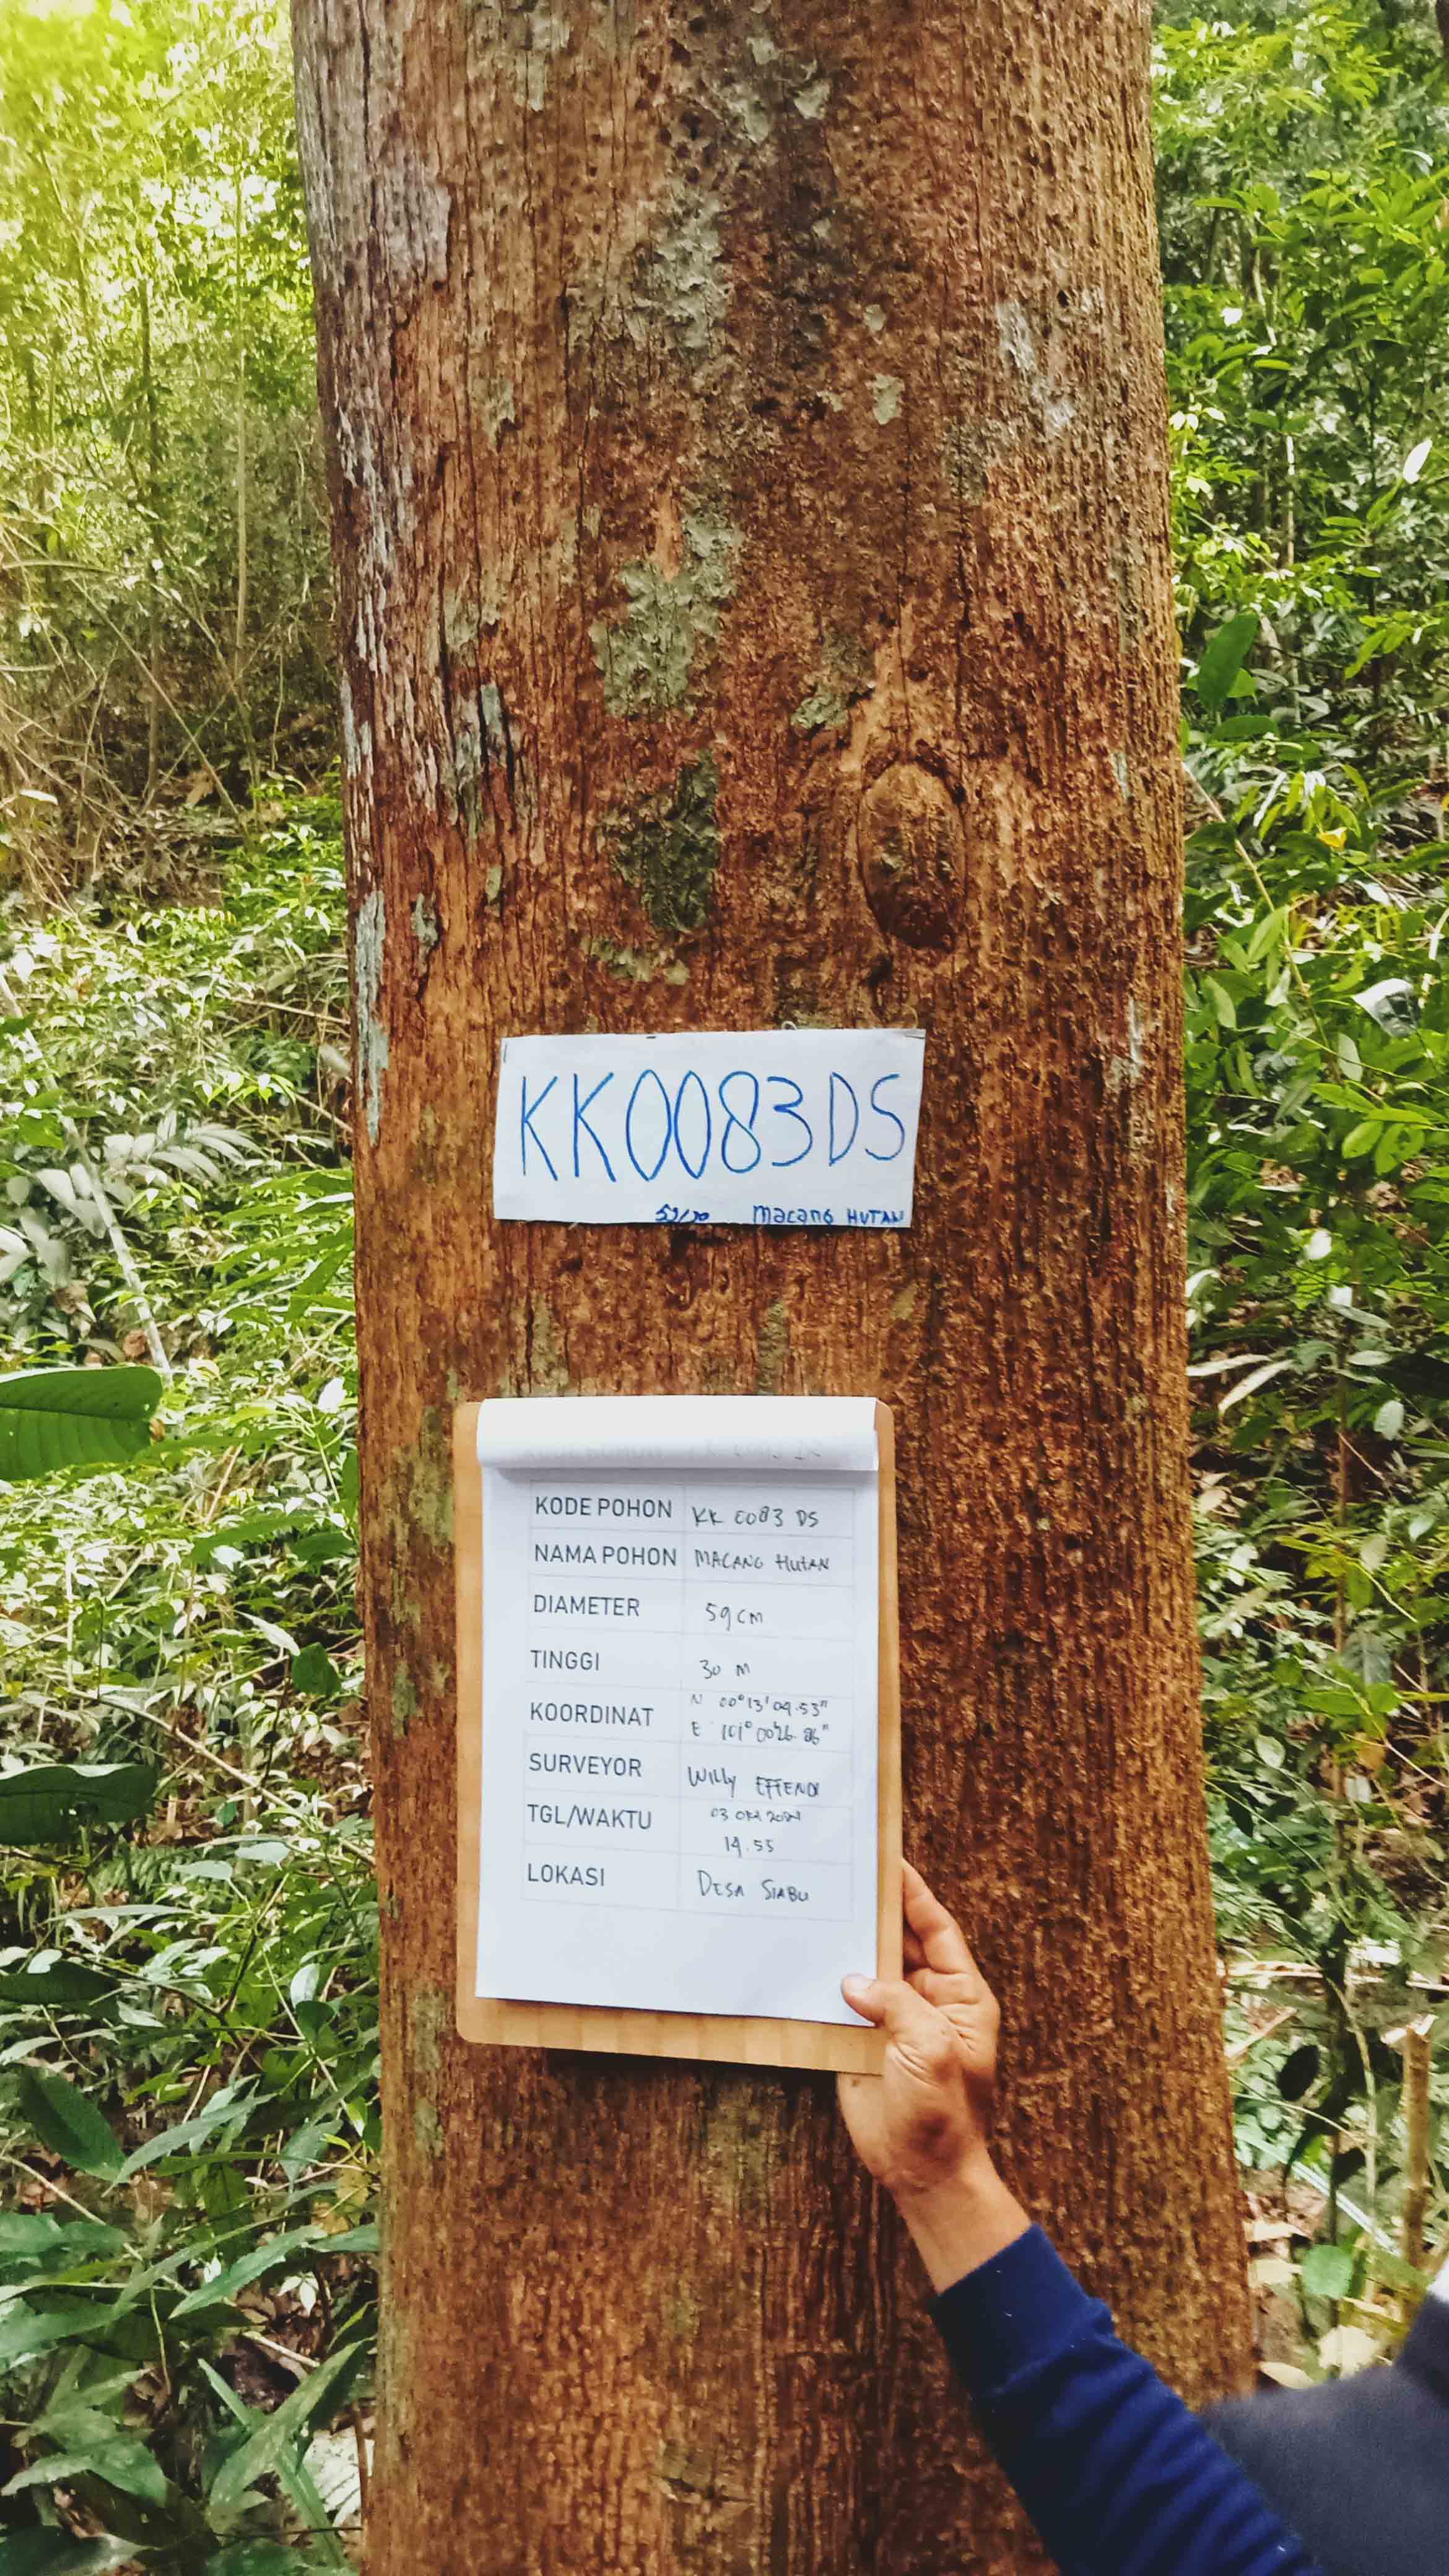 KK0083DS
MacanG HUTAN
KODE POHON KK 0083 DS
NAMA POHON MACANG HUTAN
DIAMETER 59 CM
TINGGI 30 M
KOORDINAT N 00°13'09.53"
E 101°00'26.86"
SURVEYOR Willy EFFENDI
TGL/WAKTU 03 Okt 2024
14.55
LOKASI DESA SIABU